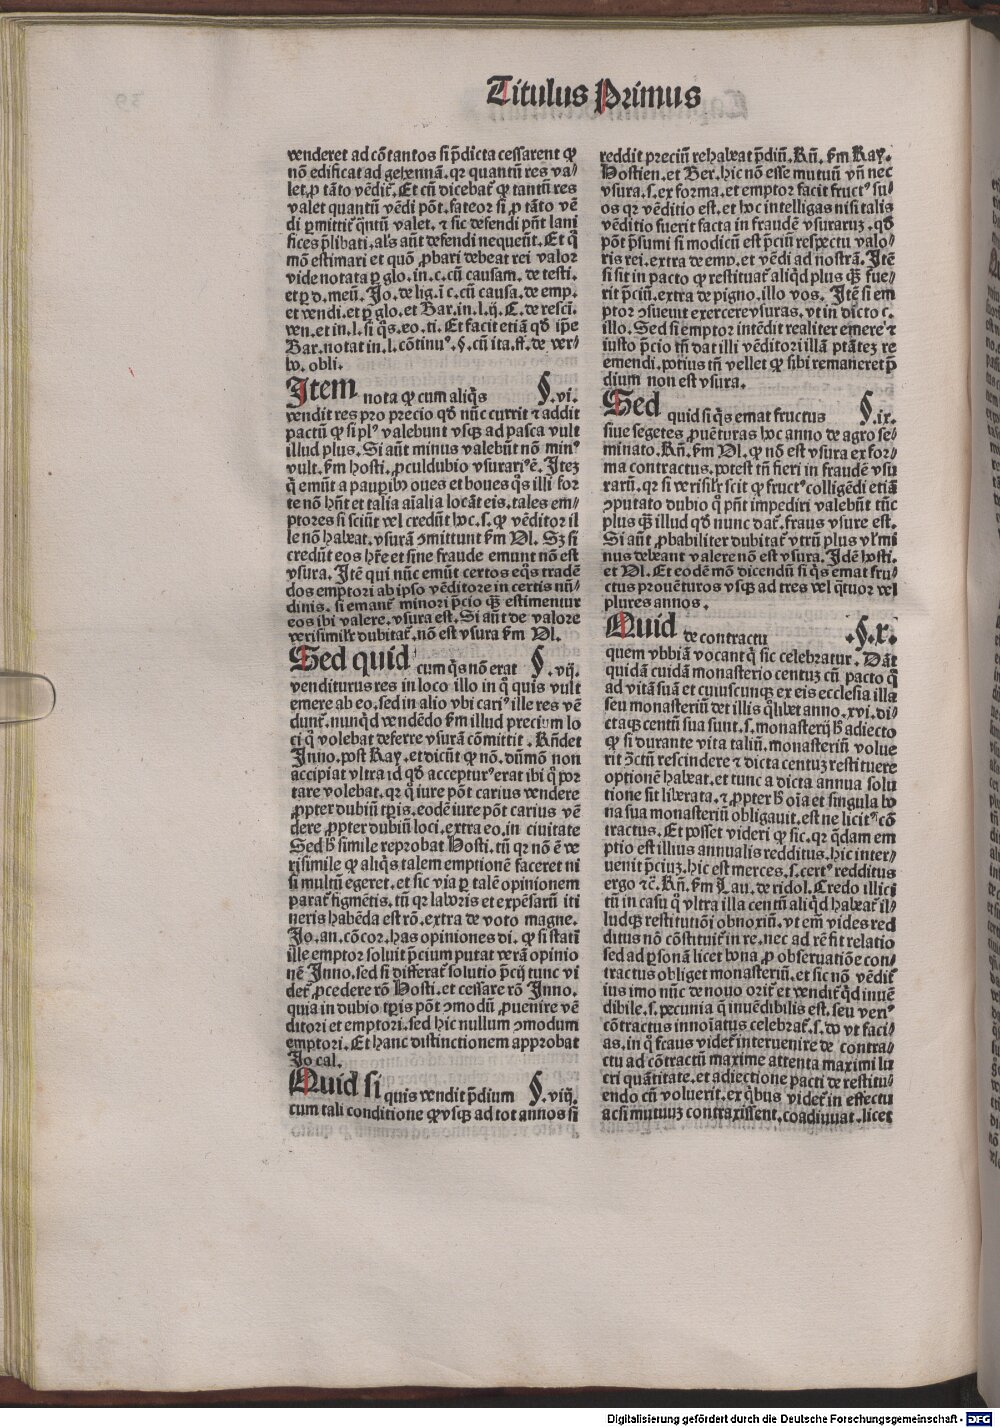 Titulus Primus
venderet ad cōtantos si p̄dicta cessarent ꝙ
nō edificat ad gehennā. qr quantū res va⸗
let, ꝓ tāto vēdit̄. Et cū dicebat̄ ꝙ tantū res
valet quantū vēdi pōt. fateor si ꝓ tāto vē
di ꝑmittit̄ q̄ntū valet. ⁊ sic defendi pn̄t lani
fices p̄libati, al's aūt defendi nequeūt. Et q̄
mō estimari et quō ꝓbari debeat rei valor
vide notata ꝑ glo. in. c. cū causam. de testi.
et ꝑ d. meū. Jo. de lig. ī c. cū causa. de emp.
et vendi. et ꝑ glo. et Bar. in. l. ij. C. de resci.
ven. et in. l. si q̄s. eo. ti. Et facit etiā qd̄ ip̄e
Bar. notat in. l. cōtinuꝰ. §. cū ita. ff. de ver⸗
bo. obli.
Item nota ꝙ cum aliq̄s §. vi.
vendit res pro precio qd̄ nūc currit ⁊ addit
pactū ꝙ si plꝰ valebunt vsq̄ ad pasca vult
illud plus. Si aūt minus valebūt nō minꝰ
vult. ẜm hosti. ꝓculdubio vsurariꝰ ē. Itez
q̄ emūt a paupibꝰ oues et boues q̄s illi for
te nō hn̄t et talia aīalia locāt eis. tales em⸗
ptores si sciūt vel credūt hoc. s. ꝙ vēditor il
le nō habeat. vsurā ɔmittunt ẜm Vl. Sz si
credūt eos hr̄e et sine fraude emunt nō est
vsura. Itē qui nūc emūt certos eq̄s tradē
dos emptori ab ipso vēditore in certis nū⸗
dinis. si emant̄ minori p̄cio q̄ estimentur
eos ibi valere. vsura est. Si aūt de valore
verisimilr̄ dubitat̄. nō est vsura ẜm Vl.
Sed quid cum q̄s nō erat §. vij.
venditurus res in loco illo in q̄ quis vult
emere ab eo. sed in alio vbi cariꝰ ille res vē
dunt̄. nunq̄d vendēdo ẜm illud precium lo
ci q̄ volebat deferre vsurā cōmittit. Rn̄det
Inno. post Ray. et dicūt ꝙ nō. dūmō non
accipiat vltra id qd̄ accepturꝰ erat ibi q̄ por
tare volebat. qr q̄ iure pōt carius vendere
ꝓpter dubiū tp̄is. eodē iure pōt carius vē
dere ꝓpter dubiū loci. extra eo. in ciuitate
Sed hͦ simile reprobat Hosti. tū qr nō ē ve
risimile ꝙ aliq̄s talem emptionē faceret ni
si multū egeret. et sic via ꝑ talē opinionem
parat̄ figmētis. tū qr laboris et expēsarū iti
neris habēda est rō. extra de voto magne.
Jo. an. cōcor. has opiniones di. ꝙ si statī
ille emptor soluit p̄cium putat verā opinio
nē Inno. sed si differat̄ solutio p̄cij tunc vi
det̄ ꝓcedere rō Hosti. et cessare rō Inno.
quia in dubio tp̄is pōt ɔmodū ꝓuenire vē
ditori et emptori. sed hic nullum ɔmodum
emptori. Et hanc distinctionem approbat
Jo cal.
Quid si quis vendit p̄dium §. viij.
cum tali conditione ꝙ vsq̄ ad tot annos si
reddit preciū rehabeat p̄diū. Rn̄. ẜm Ray.
Hostien. et Ber. hic nō esse mutuū vn̄ nec
vsura. s. ex forma. et emptor facit fructꝰ su⸗
os qr vēditio est. et hoc intelligas nisi talis
vēditio fuerit facta in fraudē vsuraruz. qd̄
pōt p̄sumi si modicū est p̄ciū respectu valo⸗
ris rei. extra de emp. et vēdi ad nostrā. Itē
si sit in pacto ꝙ restituat̄ aliq̄d plus q̄ fue⸗
rit p̄ciū. extra de pigno. illo vos. Itē si em
ptor ɔsueuit exercere vsuras. vt in dicto c.
illo. Sed si emptor intēdit realiter emere ⁊
iusto p̄cio tn̄ dat illi vēditori illā ptātez re
emendi. potius tn̄ vellet ꝙ sibi remaneret p̄
dium non est vsura.
Sed quid si q̄s emat fructus §. ix.
siue segetes ꝓuēturas hoc anno de agro se⸗
minato. Rn̄. ẜm Vl. ꝙ nō est vsura ex for⸗
ma contractus. potest tn̄ fieri in fraudē vsu
rarū. qr si verisilr̄ scit ꝙ fructꝰ colligēdi etiā
ɔputato dubio q̄ pn̄t impediri valebūt tūc
plus q̄ illud qd̄ nunc dat̄. fraus vsure est.
Si aūt ꝓbabiliter dubitat̄ vtrū plus vl' mi
nus debeant valere nō est vsura. Idē hosti.
et Vl. Et eodē mō dicendū si q̄s emat fru⸗
ctus prouēturos vsq̄ ad tres vel q̄tuor vel
plures annos.
Quid de contractu §. x.
quem vbbiā vocant q̄ sic celebratur. Dāt
quidā cuidā monasterio centuz cū pacto q̄
ad vitā suā et cuiuscunq̄ ex eis ecclesia illa
seu monasteriū det illis q̄libet anno. xvi. di⸗
ctaq̄ centū sua sunt. s. monasterij hͦ adiecto
ꝙ si durante vita taliū. monasteriū volue
rit ɔ̄ctū rescindere ⁊ dicta centuz restituere
optionē habeat. et tunc a dicta annua solu
tione sit liberata. ⁊ ꝓpter hͦ oīa et singula bo
na sua monasteriū obligauit. est ne licitꝰ cō
tractus. Et posset videri ꝙ sic. qr q̄dam em
ptio est illius annualis redditus. hic inter⸗
uenit p̄ciuz. hic est merces. s. certꝰ redditus
ergo ⁊c̄. Rn̄. ẜm Lau. de ridol. Credo illici
tū in casu q̄ vltra illa centū aliq̄d habeat̄ il⸗
ludq̄ restitutiōi obnoxiū. vt em̄ vides red
ditus nō cōstituit̄ in re. nec ad rē fit relatio
sed ad ꝑsonā licet bona ꝓ obseruatiōe con⸗
tractus obliget monasteriū. et sic nō vēdit̄
ius imo nūc de nouo orit̄ et vendit̄ q̄d inuē
dibile. s. pecunia q̄ inuēdibilis est. seu verꝰ
cōtractus innoīatus celebrat̄. s. do vt faci⸗
as. in q̄ fraus videt̄ interuenire de contra⸗
ctu ad cōtractū maxime attenta maximi lu
cri quātitate. et adiectione pacti de restitu⸗
endo cū voluerit. ex q̄bus videt̄ in effectu
acsi mutuuz contraxissent. coadiuuat. licet
Digitalisierung gefördert durch die Deutsche Forschungsgemeinschaft - DFG